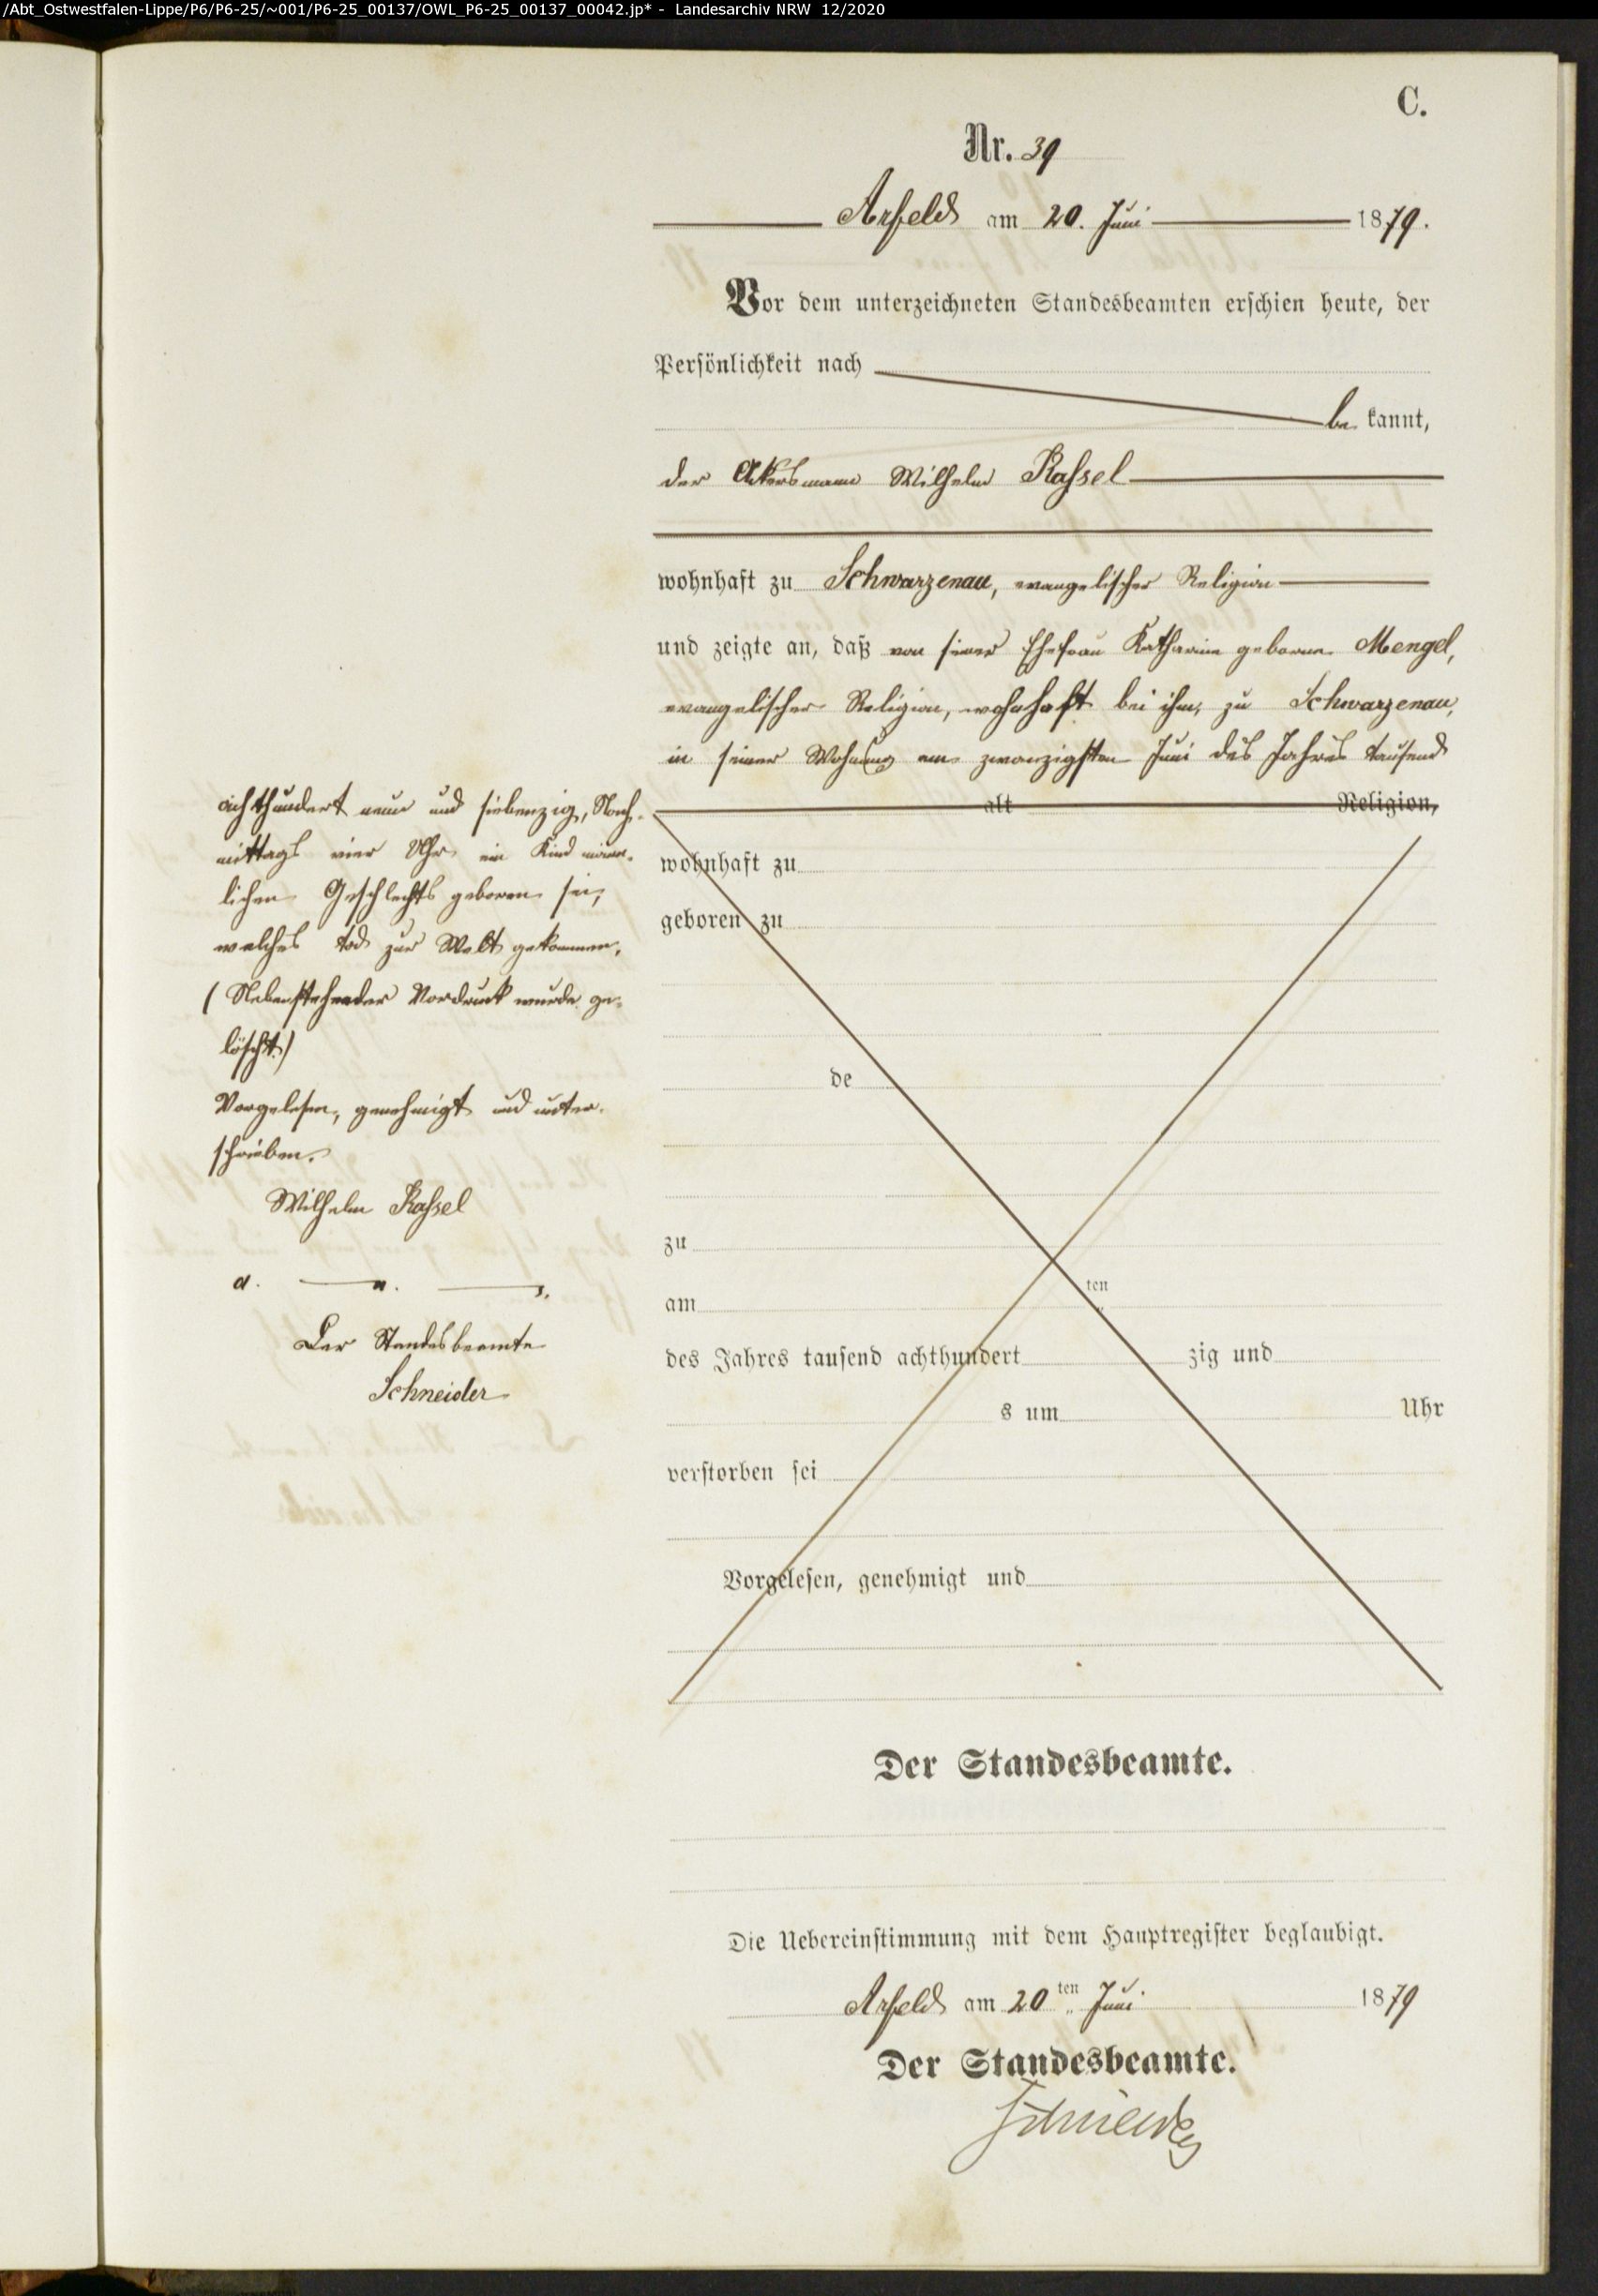 /Abt_Ostwestfalen-Lippe/P6/P6-25/~001/P6-25_00137/OWL_P6-25_00137_00042.jp* - Landesarchiv NRW 12/2020
C.
Nr. 39
Arfeld am 20. Juni 1879.
Vor dem unterzeichneten Standesbeamten erschien heute, der
Persönlichkeit nach
be kannt,
der Ackersmann Wilhelm Kassel
wohnhaft zu Schwarzenau, evangelischer Religion
und zeigte an, daß von seiner Ehefrau Katharine geborene Mengel,
evangelischer Religion, wohnhaft bei ihm, zu Schwarzenau,
in seiner Wohnung am zwanzigsten Juni des Jahres tausend
alt Religion,
achthundert neun und siebenzig, Nach-
mittags vier Uhr, ein Kind männ-
lichen Geschlechts geboren sei,
welches tod zur Welt gekommen.
(Nebenstehender Vordruck wurde ge-
löscht.)
Vorgelesen, genehmigt und unter-
schrieben.
Wilhelm Kassel
a. u. s.
Der Standesbeamte
Schneider
wohnhaft zu
geboren zu
de
zu
am ten
des Jahres tausend achthundert zig und
s um Uhr
verstorben sei
Vorgelesen, genehmigt und
Der Standesbeamte.
Die Uebereinstimmung mit dem Hauptregister beglaubigt.
Arfeld am 20ten Juni 1879
Der Standesbeamte.
Schneider